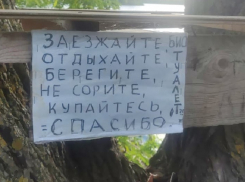 ЗАЕЗЖАЙТЕ,
ОТДЫХАЙТЕ,
БЕРЕГИТЕ,
НЕ СОРИТЕ,
КУПАЙТЕСЬ,
=СПАСИБО.
БИО
ТУАЛЕТ